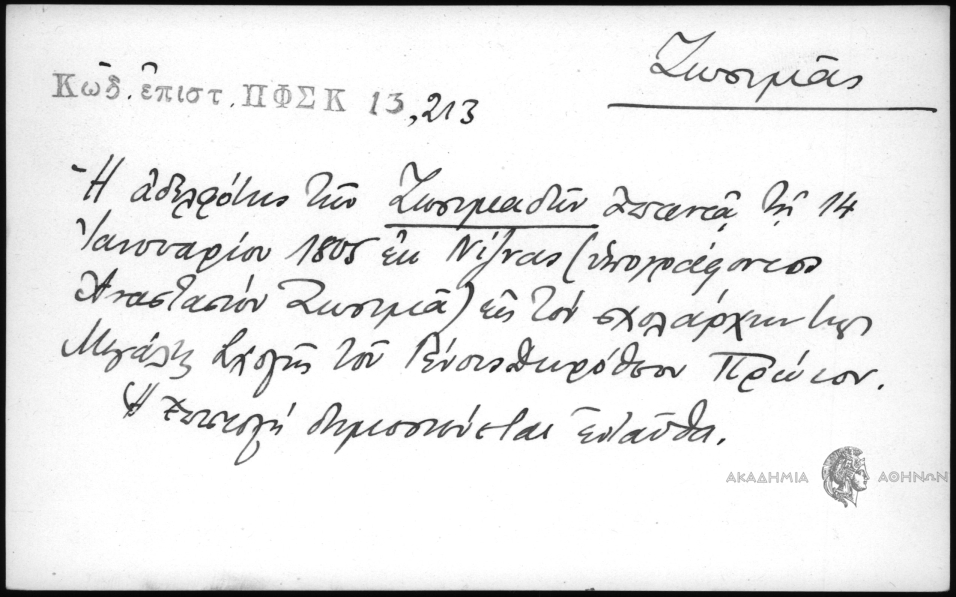 Ζωσιμᾶς
Κώδ. ἐπιστ. ΠΦΣΚ 13,213
Ἡ ἀδελφότης τῶν Ζωσιμαδῶν ἀπαντᾷ τῇ 14
Ἰανουαρίου 1805 ἐκ Νίζνας (ὑπογράφοντος
Ἀναστασίου Ζωσιμᾶ) εἰς τὸν σχολάρχην τῆς
Μεγάλης Σχολῆς τοῦ Γένους Δωρόθεον Πρώιον.
Ἡ ἐπιστολὴ δημοσιεύεται ἐνταῦθα.
ΑΚΑΔΗΜΙΑ ΑΘΗΝΩΝ